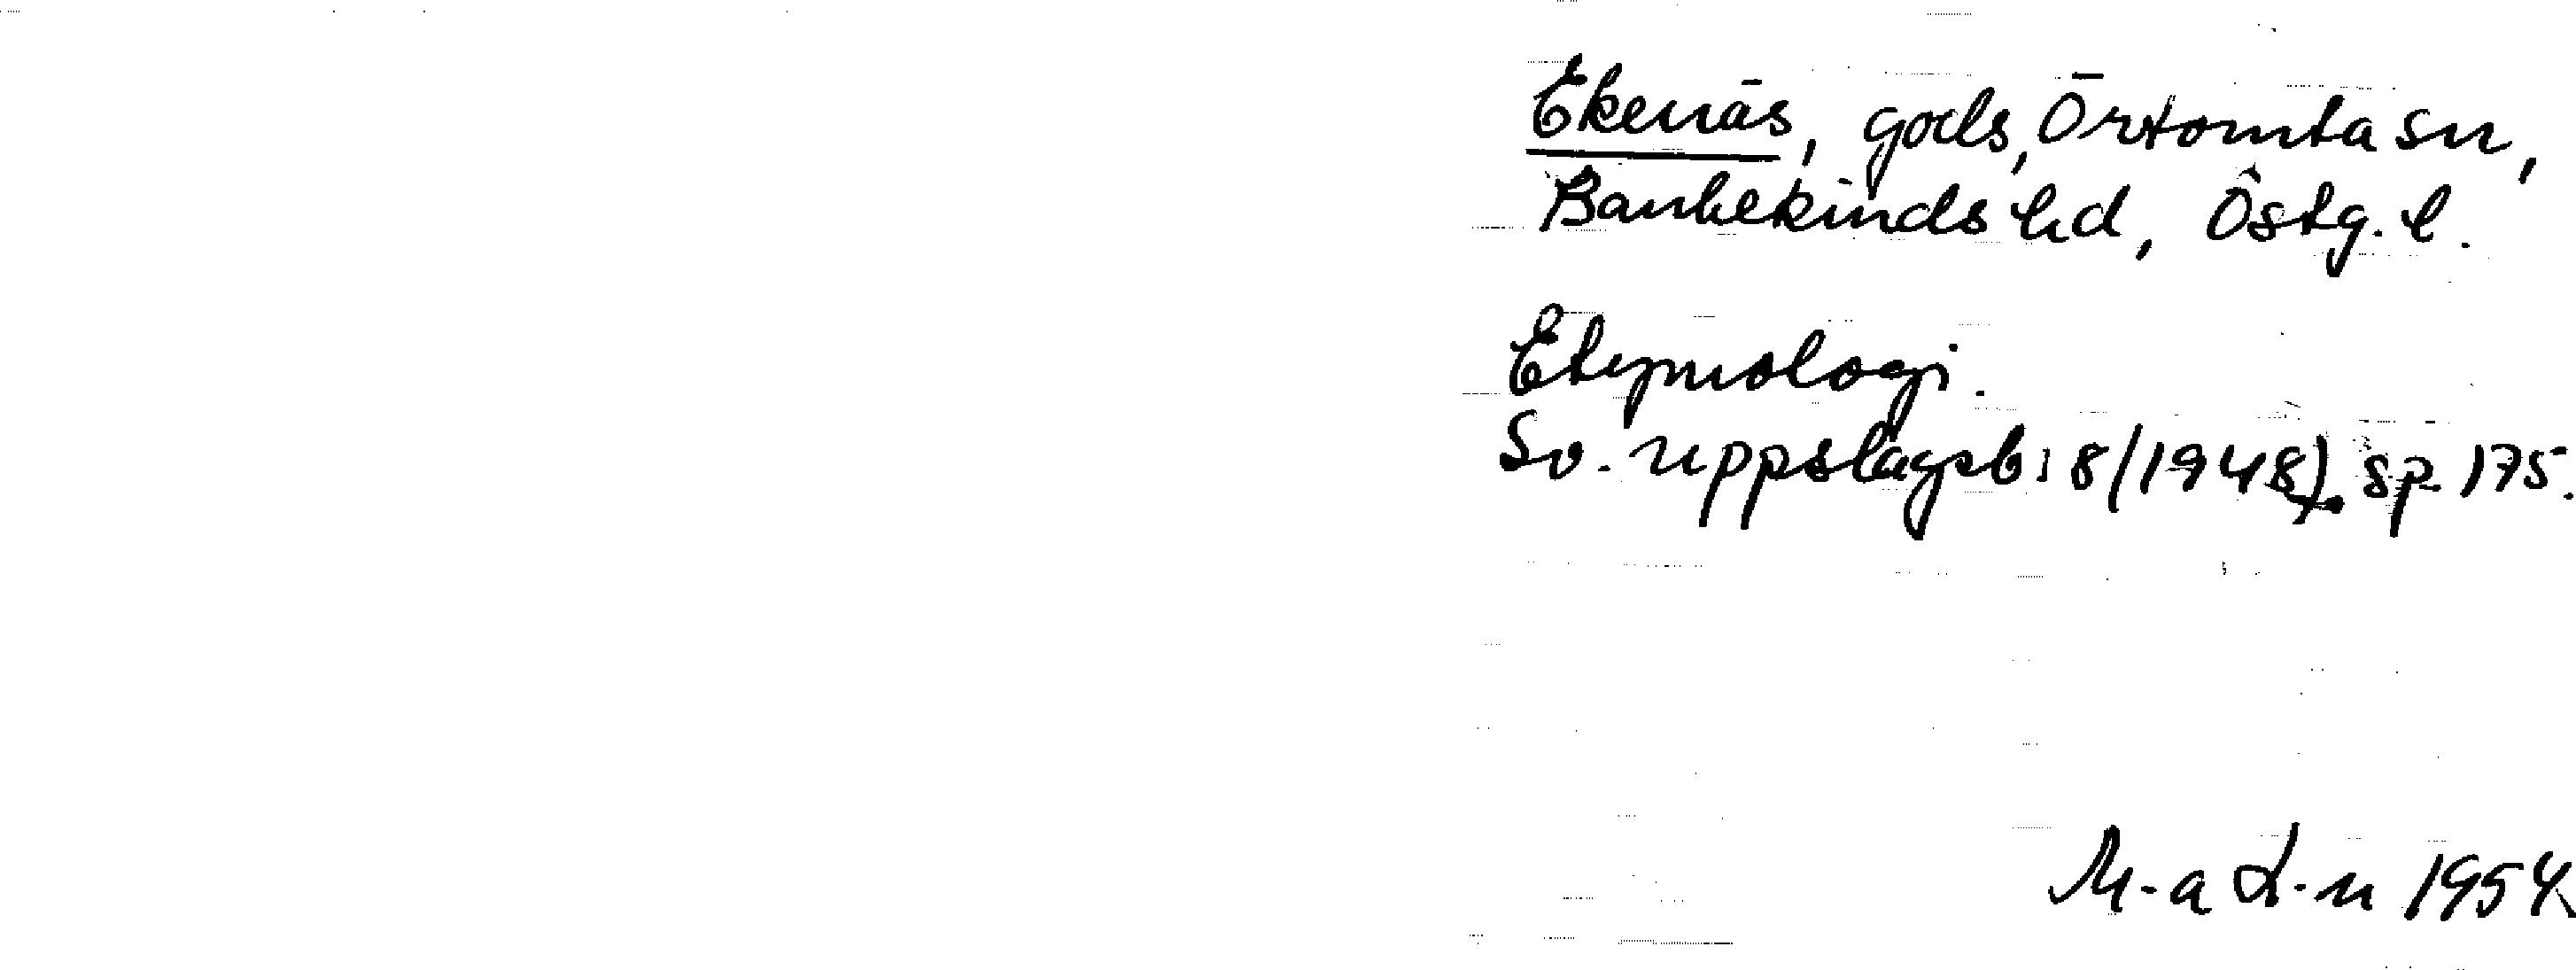 Ekenäs, gods, Örtomta sn,
Bankekinds hd, Östg. l.
Etymologi.
Sv. uppslagsb. 8/1948), sp. 175.
M-a L-n 1954